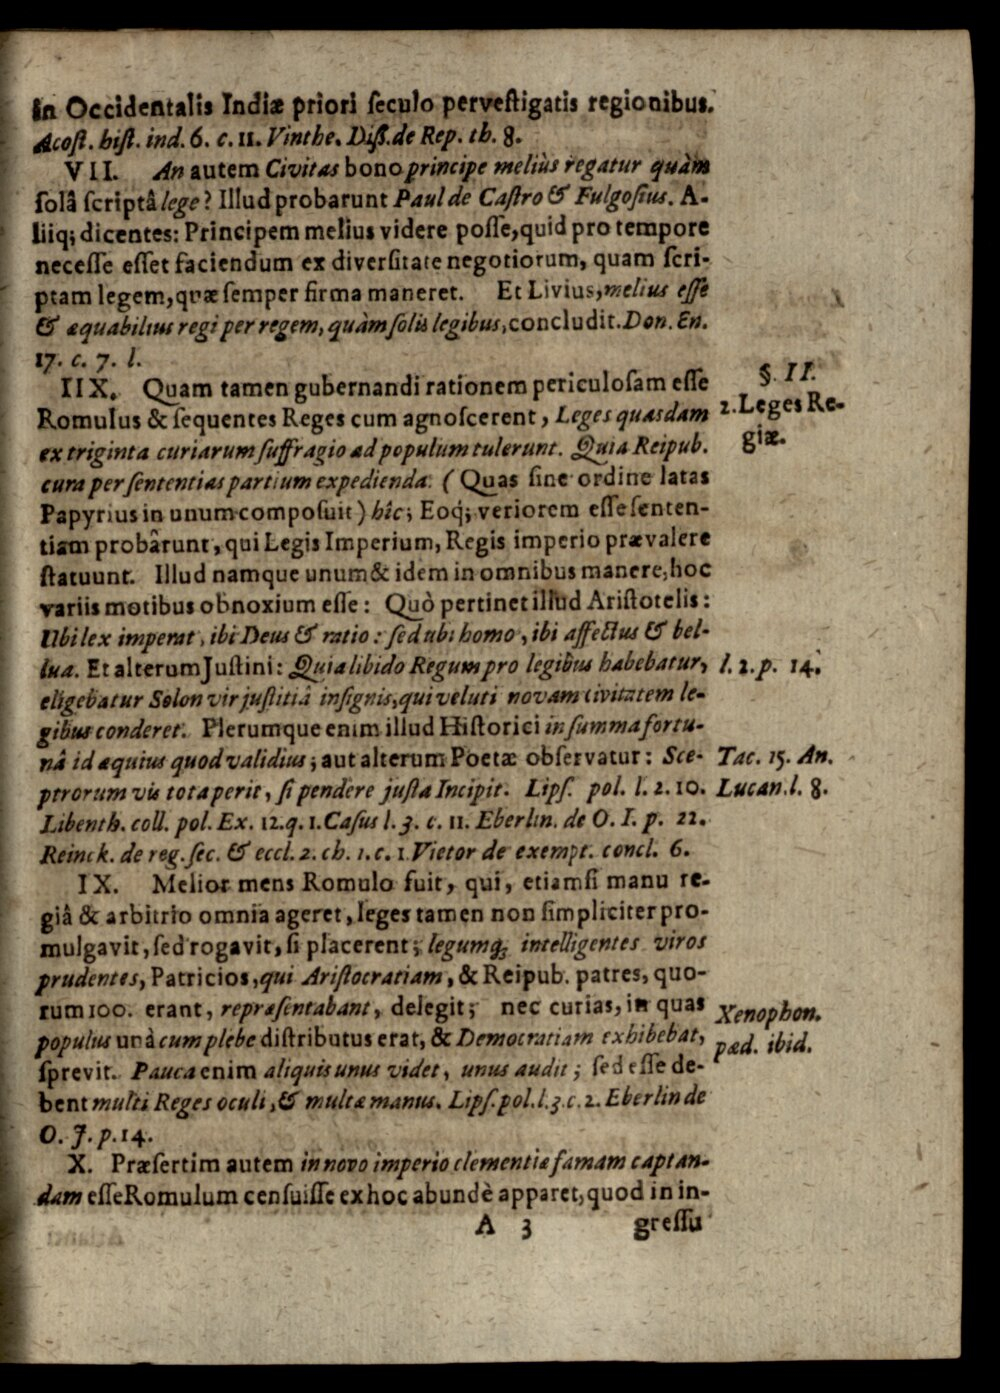 in Occidentalis Indiæ priori ſeculo perveſtigatis regionibus.
Acoſt. hiſt. ind. 6. c. 11. Vinthe. Diſſ. de Rep. th. 8.
VII. An autem Civitas bono principe meliùs regatur quàm
ſolâ ſcriptâ lege? Illud probarunt Paul de Caſtro & Fulgoſius. A-
liiq; dicentes: Principem melius videre poſſe, quid pro tempore
neceſſe eſſet faciendum ex diverſitate negotiorum, quam ſcri-
ptam legem, quæ ſemper firma maneret. Et Livius, melius eſſe
& æquabilius regi per regem, quàm ſolis legibus, concludit. Don. En.
17. c. 7. l.
IIX. Quam tamen gubernandi rationem periculoſam eſſe
§. II.
Romulus & ſequentes Reges cum agnoſcerent, Leges quasdam
2. Leges Re-
giæ.
ex triginta curiarum ſuffragio ad populum tulerunt. Quia Reipub.
cura per ſententias partium expedienda. (Quas ſine ordine latas
Papyrius in unum compoſuit) hîc; Eoq́; veriorem eſſe ſenten-
tiam probârunt, qui Legis Imperium, Regis imperio prævalere
ſtatuunt. Illud namque unum & idem in omnibus manere, hoc
variis motibus obnoxium eſſe: Quò pertinet illud Ariſtotelis:
Ubi lex imperat, ibi Deus & ratio: ſed ubi homo, ibi affectus & bel-
lua. Et alterum Juſtini: Quia libido Regum pro legibus habebatur,
l. 2. p. 14.
eligebatur Solon vir juſtitiâ inſignis, qui veluti novam civitatem le-
gibus conderet. Plerumque enim illud Hiſtorici in ſumma fortu-
nâ id æquius quod validius; aut alterum Poetæ obſervatur: Sce-
Tac. 15. An.
ptrorum vis tota perit, ſi pendere juſta Incipit. Lipſ. pol. l. 2. 10.
Lucan. l. 8.
Libenth. coll. pol. Ex. 12. q. 1. Caſus l. 3. c. 11. Eberlin. de O. I. p. 22.
Reinck. de reg. ſec. & eccl. 2. ch. 1. c. 1 Vietor de exempt. concl. 6.
IX. Melior mens Romulo fuit, qui, etiamſi manu re-
giâ & arbitrio omnia ageret, leges tamen non ſimpliciter pro-
mulgavit, ſed rogavit, ſi placerent; legumq; intelligentes viros
prudentes, Patricios, qui Ariſtocratiam, & Reipub. patres, quo-
rum 100. erant, repræſentabant, delegit; nec curias, in quas
Xenophon.
populus unà cum plebe diſtributus erat, & Democratiam exhibebat,
pæd. ibid.
ſprevit. Pauca enim aliquis unus videt, unus audit; ſed eſſe de-
bent multi Reges oculi, & multæ manus. Lipſ. pol. l. 3. c. 2. Eberlin de
O. J. p. 14.
X. Præſertim autem in novo imperio clementiæ famam captan-
dam eſſe Romulum cenſuiſſe ex hoc abundè apparet, quod in in-
A 3 greſſu